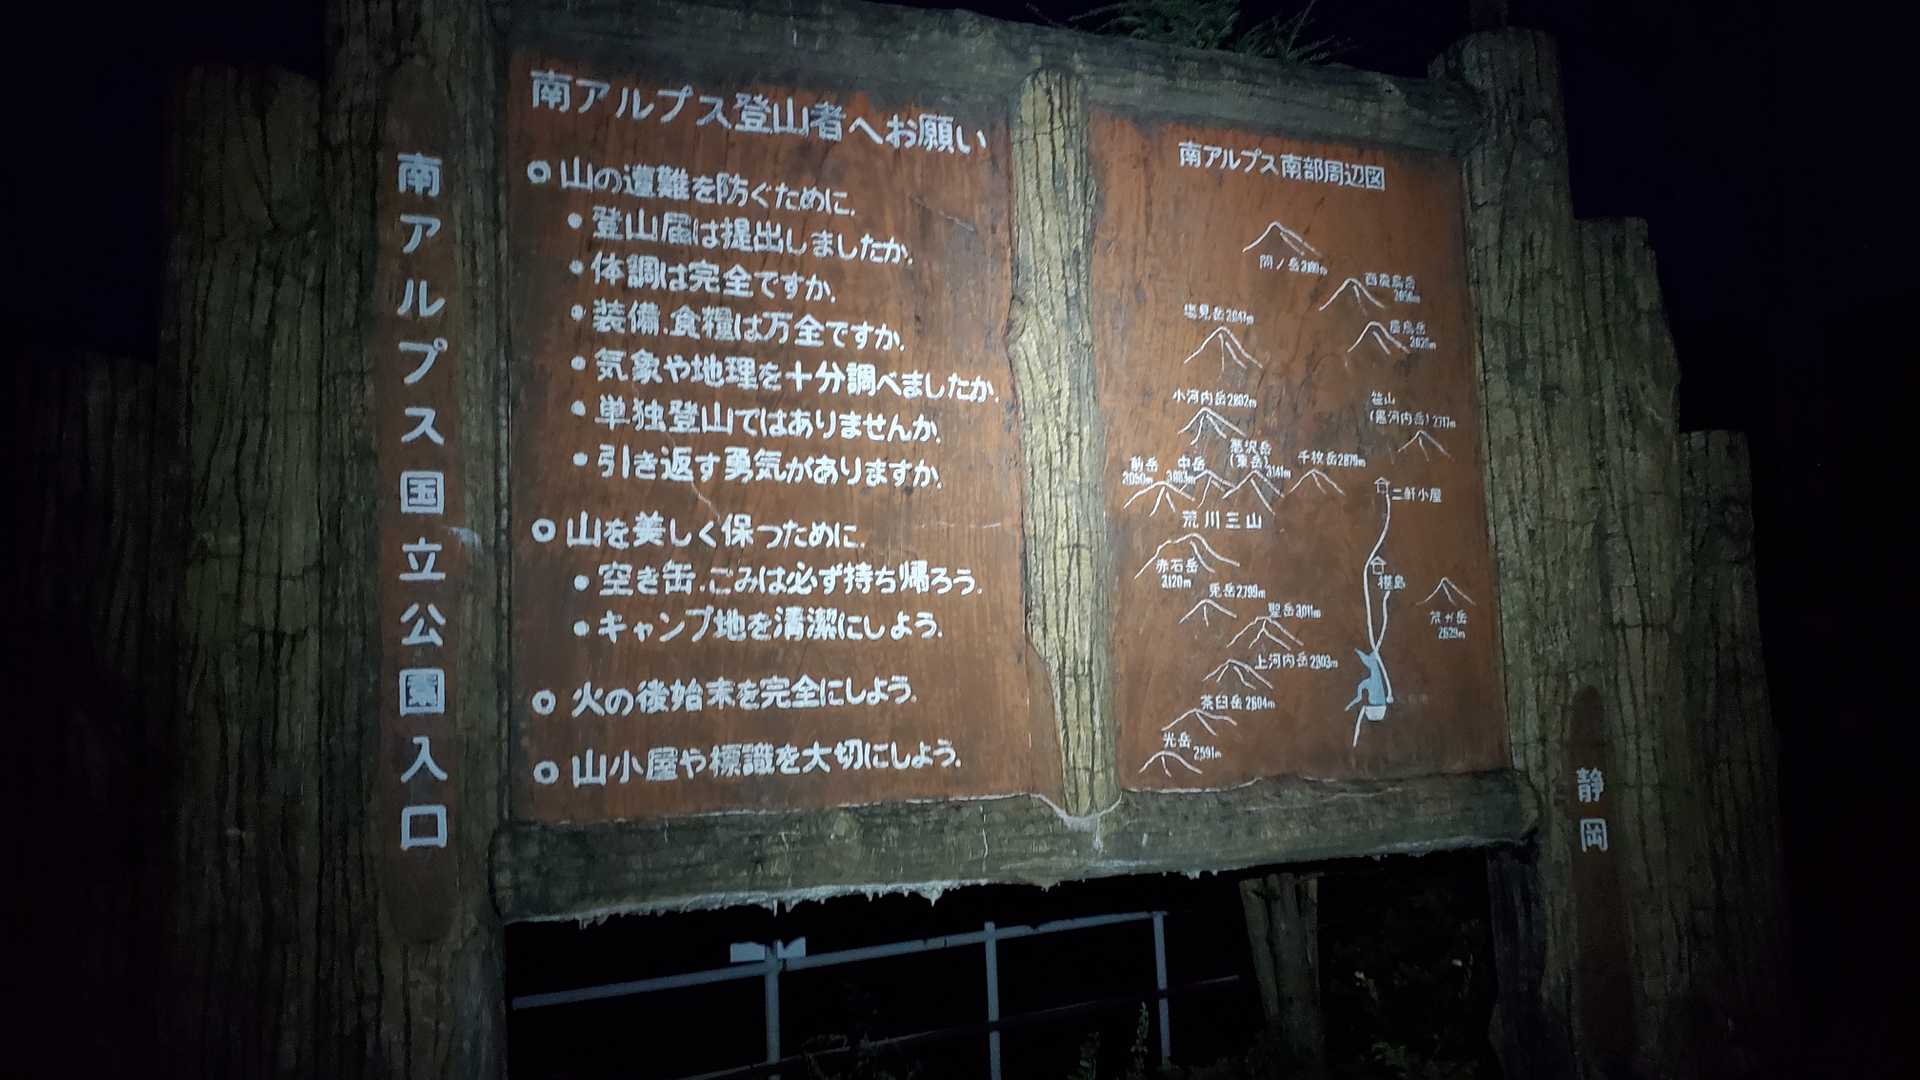 南アルプス国立公園入口
南アルプス登山者へお願い
○山の遭難を防ぐために.
・登山届は提出しましたか.
・体調は完全ですか.
・装備.食糧は万全ですか.
・気象や地理を十分調べましたか.
・単独登山ではありませんか.
・引き返す勇気がありますか.
○山を美しく保つために.
・空き缶.ごみは必ず持ち帰ろう.
・キャンプ地を清潔にしよう.
○火の後始末を完全にしよう.
○山小屋や標識を大切にしよう.
南アルプス南部周辺図
間ノ岳
西農鳥岳
塩見岳2,047m
農鳥岳
小河内岳2802m
笹山
(黒河内岳)2717m
悪沢岳
(東岳)3,141m
千枚岳2,879m
前岳
中岳
3,083m
二軒小屋
荒川三山
赤石岳
3,120m
椹島
兎岳2,799m
聖岳3,011m
笊ガ岳
2,629m
上河内岳2803m
茶臼岳2604m
光岳
2,591m
静岡